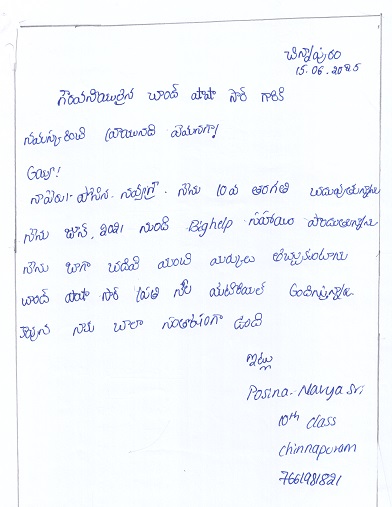 చిన్నాపురం
15.06.2025
గౌరవనీయులైన చాంద్ పాషా సార్ గారికి
నమస్కరించి వ్రాయునది ఏమనగా!
Gayy!
నాపేరు: పోసిన. నవ్యశ్రీ. నేను 10వ తరగతి చదువుతున్నాను
నేను జూన్, 2021 నుండి Bighelp సహాయం పొందుతున్నాను
నేను బాగా చదివి మంచి మార్కులు తెచ్చుకుంటాను
చాంద్ పాషా సార్ ప్రతి నెల మెటీరియల్ అందిస్తున్నారు
నాకు చాలా సంతోషంగా ఉంది
ఇట్లు
Posina. Navya Sri
10th class
Chinnapuram
7661981821